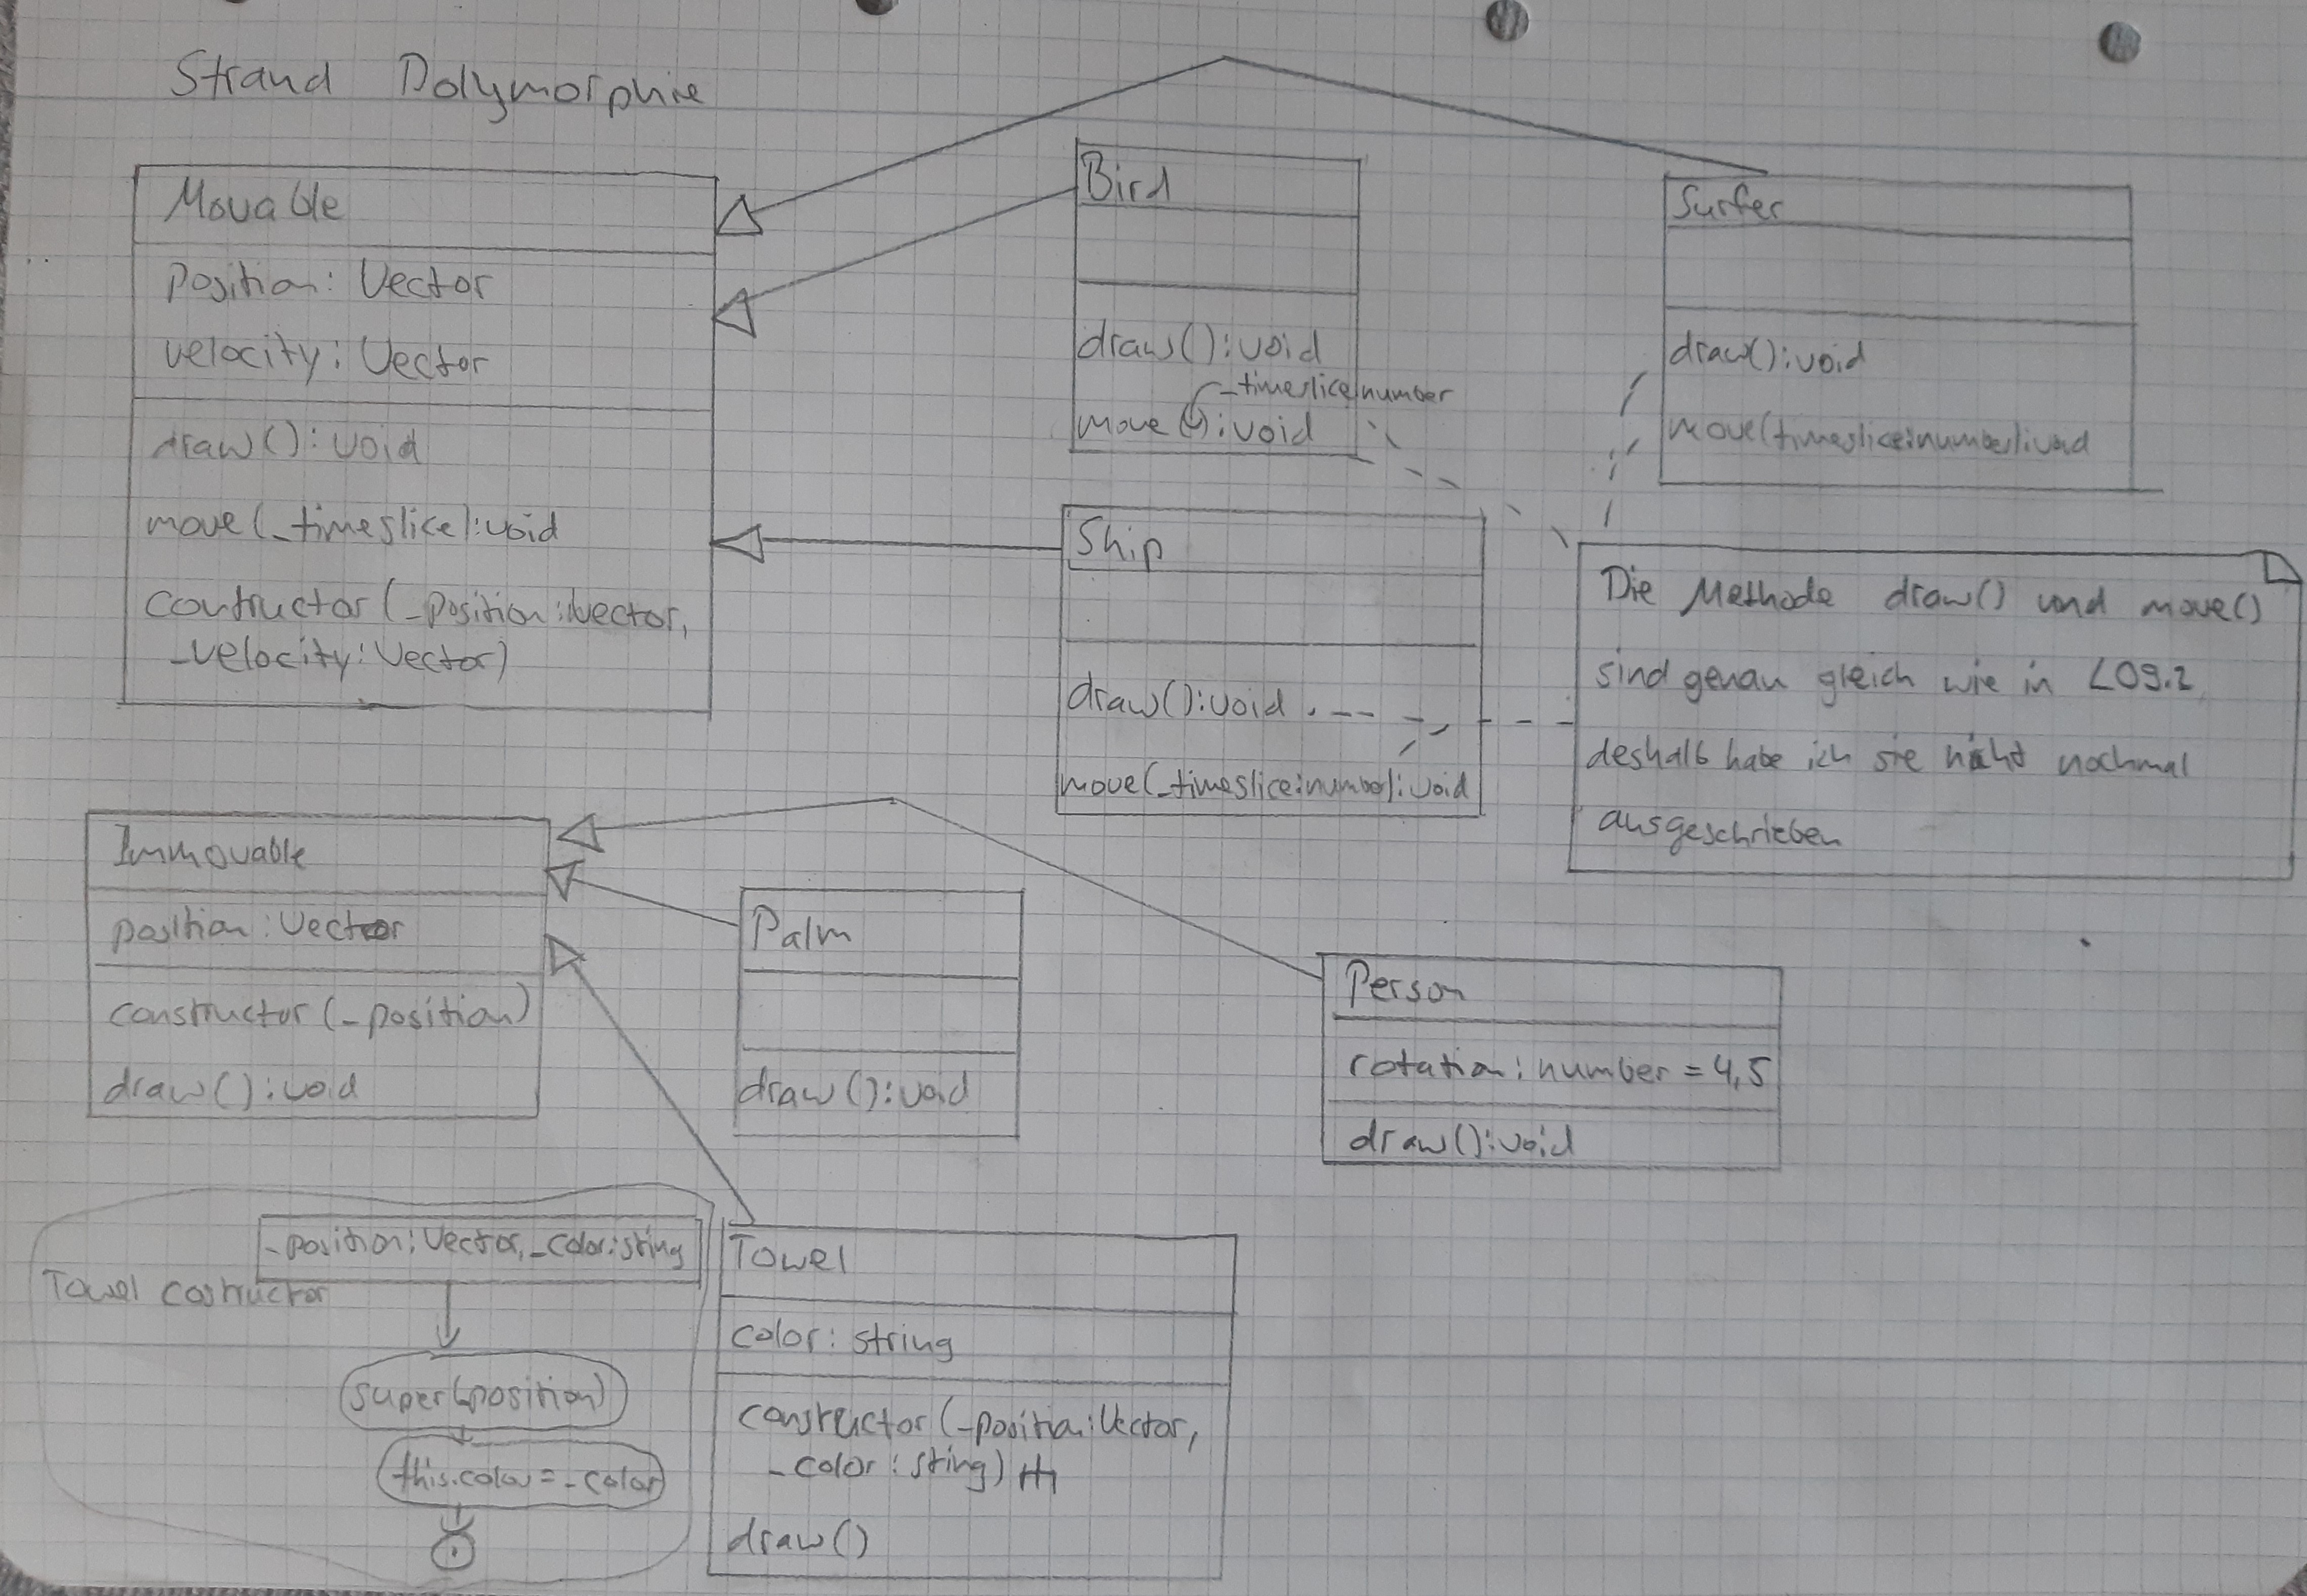 Strand Polymorphie
Movable
position: Vector
velocity: Vector
draw(): void
move(_timeslice): void
contructor(_position: Vector,
_velocity: Vector)
Bird
draw(): void
_timeslice:number
move(): void
Surfer
draw(): void
move(timeslice:number):void
Ship
draw(): void
move(_timeslice:number): void
Die Methode draw() und move()
sind genau gleich wie in L09.2
deshalb habe ich sie nicht nochmal
ausgeschrieben
Immovable
position: Vector
constructor(_position)
draw(): void
Palm
draw(): void
Person
rotation: number = 4,5
draw(): void
_position: Vector, _color: string
Towel costructor
super(_position)
this.color = _color
Towel
color: string
constructor(_position: Vector,
_color: sting)
draw()